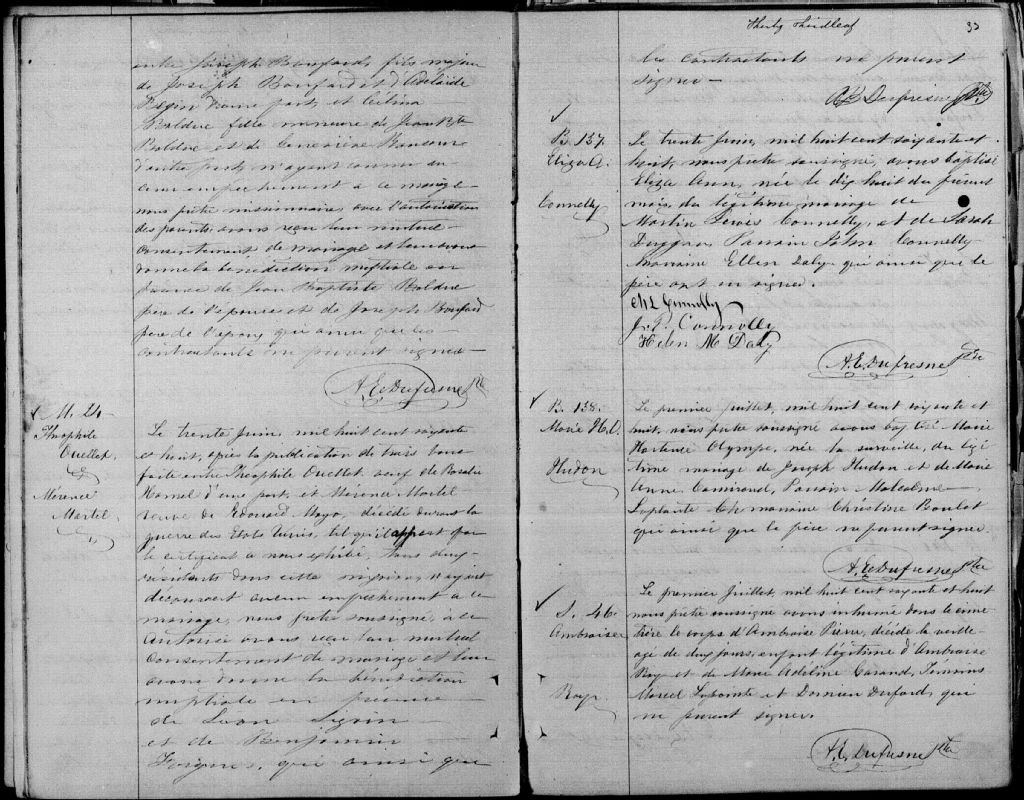 entre Joseph Bonfard, fils majeur
de Joseph Bonfard et d'Adelaide
d'une part, et Célina
Bolduc fille mineure de Jean Bte
Bolduc et de Geneviève
d'autre part, n'ayant connu au-
cun empêchement à ce mariage
nous prêtre missionnaire, avec l'autorisation
des parents, avons reçu leur mutuel
consentement de mariage et leur avons
donné la bénédiction nuptiale en
présence de Jean Baptiste Bolduc
père de l'épouse et de Joseph Bonfard
père de l'époux qui ainsi que les
contractants ne peuvent signer
A. E. Dufresne Ptre
M. 24
Théophile
Ouellet,
Mérence
Martel,
Le trente Juin, mil huit cent soixante
et huit, après la publication de trois bans
faite entre Théophile Ouellet, veuf de Rosalie
Hamel d'une part, et Mérence Martel
veuve de Edouard Mayo, décédé durant la
guerre des Etats Unis, tel qu'il appert par
le certificat à nous exhibé, tous deux
résidents dans cette mission, n'ayant
découvert aucun empêchement à ce
mariage, nous prêtre soussigné, à ce
autorisé avons reçu leur mutuel
consentement de mariage et leur
avons donné la bénédiction
nuptiale en présence
de Léon
et de Benjamin
qui ainsi que
Thirty Third leaf
33
les contractants ne peuvent
signer
A. E. Dufresne Ptre
B. 137.
Eliza A.
Connelly
Le trente Juin, mil huit cent soixante et
huit, nous prêtre soussigné, avons baptisé
Eliza Ann, née le dix huit du présent
mois, du légitime mariage de
Martin Lewis Connelly, et de Sarah
Duggan, Parrain John Connelly
Marraine Ellen Daly qui ainsi que le
père ont en signer.
M L Connelly
J. P. Connolly
Helen M Daly
A. E. Dufresne Ptre
B. 138.
Marie H. O.
Hudon
Le premier Juillet, mil huit cent soixante et
huit, nous prêtre soussigné avons baptisé Marie
Hortense Olympe, née la surveille, du légi
time mariage de Joseph Hudon et de Marie
Anne Camirand, Parrain Malcolme
Laplante Ch marraine Christine Boulet
qui ainsi que le père ne peuvent signer.
A. E. Dufresne Ptre
S. 46.
Ambroise
Roy
Le premier Juillet, mil huit cent soixante et huit
nous prêtre soussigné avons inhumé dans le cime-
tière le corps d'Ambroise Pierre, décédé la veille
agé de dix jours, enfant légitime d'Ambroise
Roy et de Marie Adeline Garand, Témoins
Marcel Lacomte et Damien Durford, qui
ne peuvent signer.
A. E. Dufresne Ptre